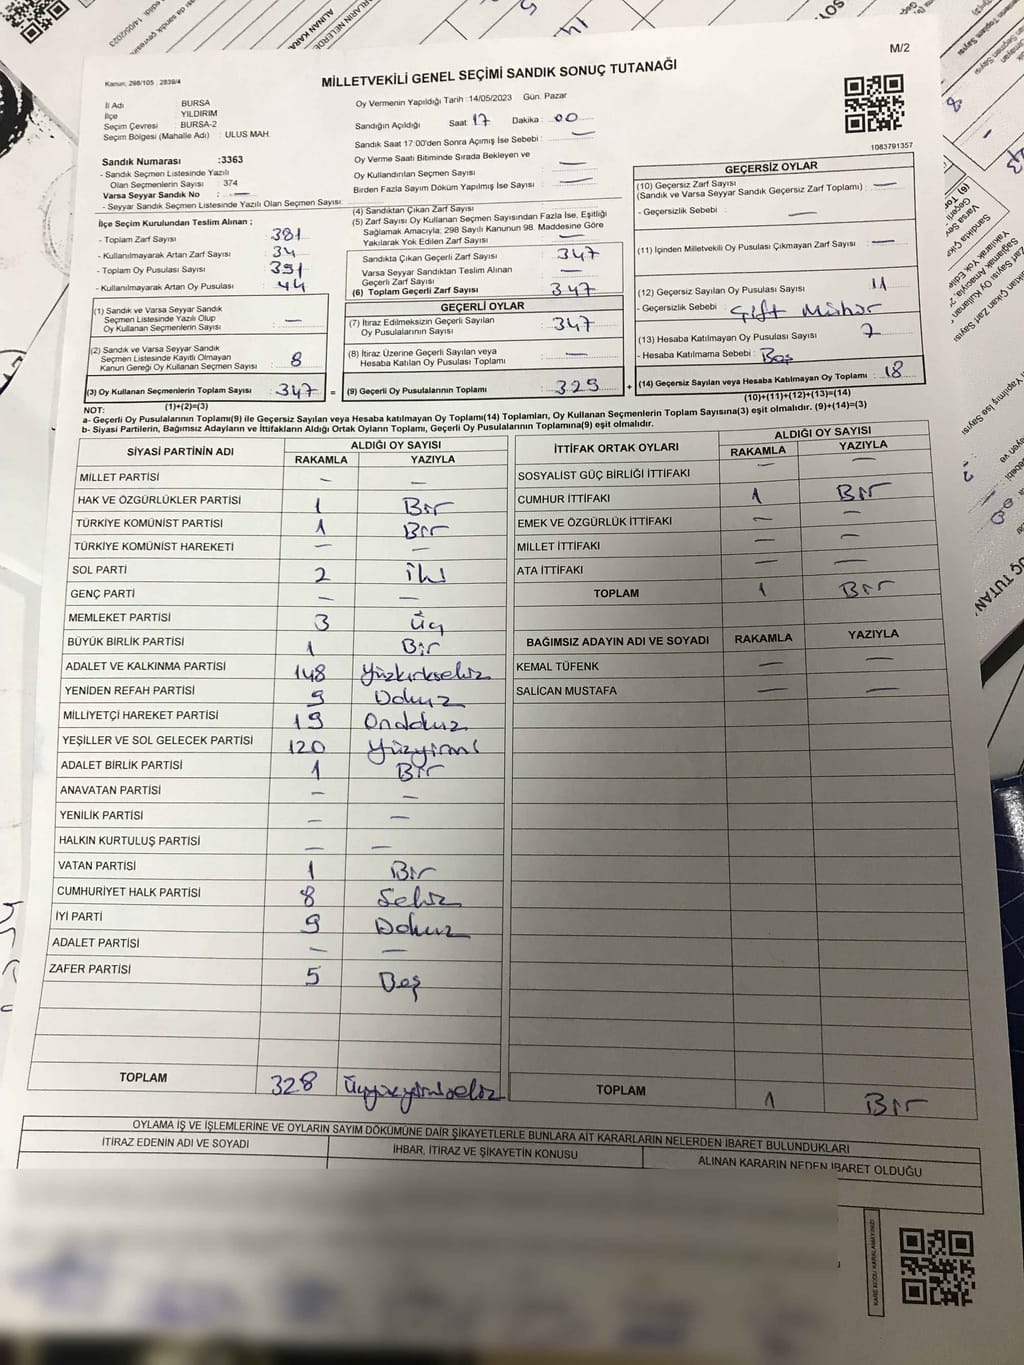 M/2
Kanun; 298/105 , 2839/4
MİLLETVEKİLİ GENEL SEÇİMİ SANDIK SONUÇ TUTANAĞI
İl Adı : BURSA
İlçe : YILDIRIM
Seçim Çevresi : BURSA-2
Seçim Bölgesi (Mahalle Adı) : ULUS MAH.
Sandık Numarası :3363
- Sandık Seçmen Listesinde Yazılı
Olan Seçmenlerin Sayısı : 374
Varsa Seyyar Sandık No : —
- Seyyar Sandık Seçmen Listesinde Yazılı Olan Seçmen Sayısı:
Oy Vermenin Yapıldığı Tarih :14/05/2023 Gün. Pazar
Sandığın Açıldığı Saat 17 Dakika : 00
Sandık Saat 17:00'den Sonra Açılmış İse Sebebi : —
Oy Verme Saati Bitiminde Sırada Bekleyen ve
Oy Kullandırılan Seçmen Sayısı —
Birden Fazla Sayım Döküm Yapılmış İse Sayısı —
1083791357
İlçe Seçim Kurulundan Teslim Alınan ;
- Toplam Zarf Sayısı 381
- Kullanılmayarak Artan Zarf Sayısı 34
- Toplam Oy Pusulası Sayısı 391
- Kullanılmayarak Artan Oy Pusulası 44
(1) Sandık ve Varsa Seyyar Sandık
Seçmen Listesinde Yazılı Olup
Oy Kullanan Seçmenlerin Sayısı —
(2) Sandık ve Varsa Seyyar Sandık
Seçmen Listesinde Kayıtlı Olmayan
Kanun Gereği Oy Kullanan Seçmenlerin Sayısı 8
(3) Oy Kullanan Seçmenlerin Toplam Sayısı 347 =
(1)+(2)=(3)
(4) Sandıktan Çıkan Zarf Sayısı
(5) Zarf Sayısı Oy Kullanan Seçmen Sayısından Fazla İse, Eşitliği
Sağlamak Amacıyla; 298 Sayılı Kanunun 98. Maddesine Göre
Yakılarak Yok Edilen Zarf Sayısı —
Sandıkta Çıkan Geçerli Zarf Sayısı 347
Varsa Seyyar Sandıktan Teslim Alınan
Geçerli Zarf Sayısı —
(6) Toplam Geçerli Zarf Sayısı 347
GEÇERLİ OYLAR
(7) İtiraz Edilmeksizin Geçerli Sayılan
Oy Pusulalarının Sayısı 347
(8) İtiraz Üzerine Geçerli Sayılan veya
Hesaba Katılan Oy Pusulası Toplamı —
(9) Geçerli Oy Pusulalarının Toplamı 329 +
GEÇERSİZ OYLAR
(10) Geçersiz Zarf Sayısı
(Sandık ve Varsa Seyyar Sandık Geçersiz Zarf Toplamı) : —
- Geçersizlik Sebebi : —
(11) İçinden Milletvekili Oy Pusulası Çıkmayan Zarf Sayısı —
(12) Geçersiz Sayılan Oy Pusulası Sayısı 11
- Geçersizlik Sebebi : Çift Mühür
(13) Hesaba Katılmayan Oy Pusulası Sayısı 7
- Hesaba Katılmama Sebebi : Boş
(14) Geçersiz Sayılan veya Hesaba Katılmayan Oy Toplamı 18
(10)+(11)+(12)+(13)=(14)
NOT:
a- Geçerli Oy Pusulalarının Toplamı(9) ile Geçersiz Sayılan veya Hesaba katılmayan Oy Toplamı(14) Toplamları, Oy Kullanan Seçmenlerin Toplam Sayısına(3) eşit olmalıdır. (9)+(14)=(3)
b- Siyasi Partilerin, Bağımsız Adayların ve İttifakların Aldığı Ortak Oyların Toplamı, Geçerli Oy Pusulalarının Toplamına(9) eşit olmalıdır.
SİYASİ PARTİNİN ADI ALDIĞI OY SAYISI
RAKAMLA YAZIYLA
MİLLET PARTİSİ — —
HAK VE ÖZGÜRLÜKLER PARTİSİ 1 Bir
TÜRKİYE KOMÜNİST PARTİSİ 1 Bir
TÜRKİYE KOMÜNİST HAREKETİ — —
SOL PARTİ 2 İki
GENÇ PARTİ — —
MEMLEKET PARTİSİ 3 Üç
BÜYÜK BİRLİK PARTİSİ 1 Bir
ADALET VE KALKINMA PARTİSİ 148 Yüzkırksekiz
YENİDEN REFAH PARTİSİ 9 Dokuz
MİLLİYETÇİ HAREKET PARTİSİ 19 Ondokuz
YEŞİLLER VE SOL GELECEK PARTİSİ 120 Yüzyirmi
ADALET BİRLİK PARTİSİ 1 Bir
ANAVATAN PARTİSİ — —
YENİLİK PARTİSİ — —
HALKIN KURTULUŞ PARTİSİ — —
VATAN PARTİSİ 1 Bir
CUMHURİYET HALK PARTİSİ 8 Sekiz
İYİ PARTİ 9 Dokuz
ADALET PARTİSİ — —
ZAFER PARTİSİ 5 Beş
TOPLAM 328 Üçyüzyirmisekiz
İTTİFAK ORTAK OYLARI ALDIĞI OY SAYISI
RAKAMLA YAZIYLA
SOSYALİST GÜÇ BİRLİĞİ İTTİFAKI — —
CUMHUR İTTİFAKI 1 Bir
EMEK VE ÖZGÜRLÜK İTTİFAKI — —
MİLLET İTTİFAKI — —
ATA İTTİFAKI — —
TOPLAM 1 Bir
BAĞIMSIZ ADAYIN ADI VE SOYADI RAKAMLA YAZIYLA
KEMAL TÜFENK — —
SALİCAN MUSTAFA — —
TOPLAM 1 Bir
OYLAMA İŞ VE İŞLEMLERİNE VE OYLARIN SAYIM DÖKÜMÜNE DAİR ŞİKAYETLERLE BUNLARA AİT KARARLARIN NELERDEN İBARET BULUNDUKLARI
İTİRAZ EDENİN ADI VE SOYADI İHBAR, İTİRAZ VE ŞİKAYETİN KONUSU ALINAN KARARIN NEDEN İBARET OLDUĞU
KARE KODU KARALAMAYINIZ!